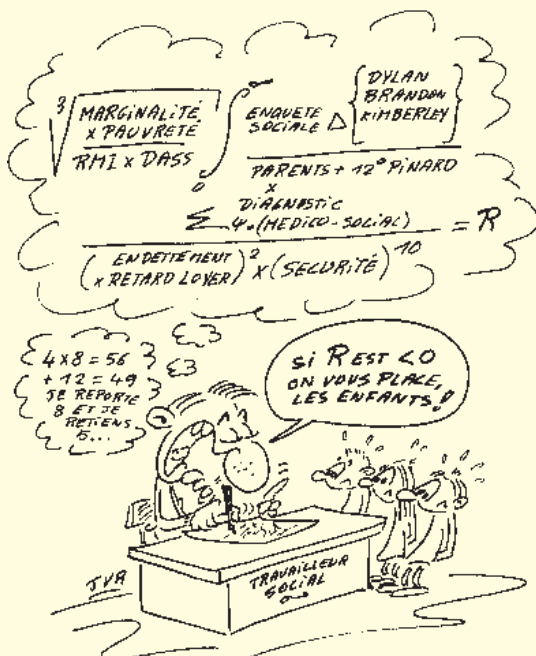 3
MARGINALITÉ
x PAUVRETÉ
RMI x DASS
∫
0
ENQUETE
SOCIALE Δ
DYLAN
BRANDON
KIMBERLEY
PARENTS + 12° PINARD
x
DIAGNOSTIC
Σ ψ.(MEDICO-SOCIAL)
= R
(ENDETTEMENT
x RETARD LOYER)² x (SECURITÉ)¹⁰
4 x 8 = 56
+ 12 = 49
JE REPORTE
8 ET JE
RETIENS
5...
SI R EST <0
ON VOUS PLACE,
LES ENFANTS!
TRAVAILLEUR
SOCIAL
JVR